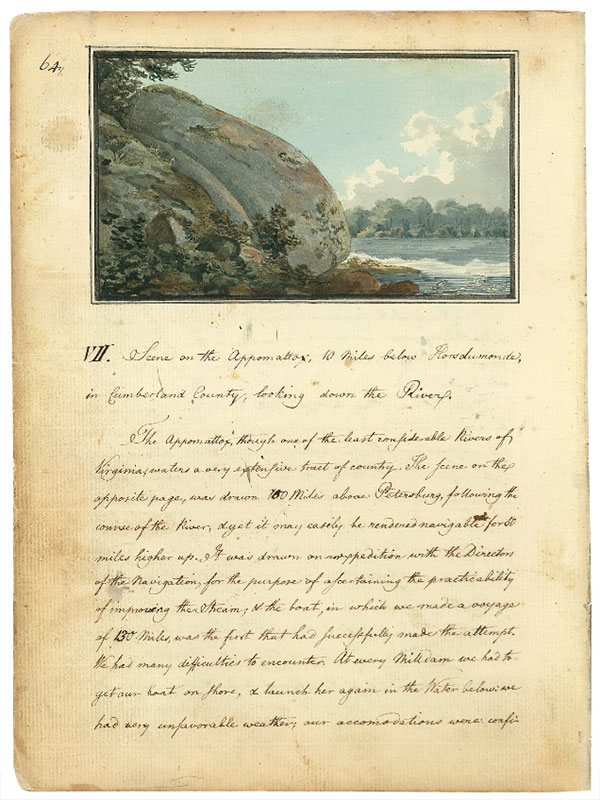 64.
VII. Scene on the Appomattox, 10 Miles below Horsdumonde,
in Cumberland County, looking down the River.
The Appomattox, though one of the least considerable Rivers of
Virginia, waters a very extensive tract of country. The scene on the
opposite page, was drawn 100 Miles above Petersburg, following the
course of the River, & yet it may easily be rendered navigable for 50
miles higher up. It was drawn on an expedition with the Directors
of the Navigation, for the purpose of ascertaining the practicability
of improving the Stream; & the boat, in which we made a voyage
of 130 Miles, was the first that had successfully made the attempt.
We had many difficulties to encounter. At every Milldam we had to
get our boat on shore, & launch her again in the Water below: we
had very unfavorable weather; our accomodations were confi-